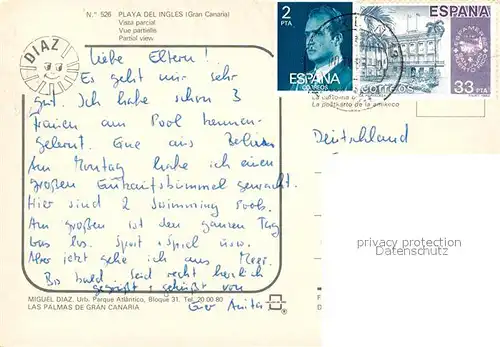 N.° 526 PLAYA DEL INGLES (Gran Canaria)
Vista parcial
Vue partielle
Partial view
DIAZ
Liebe Eltern!
Es geht mir sehr
gut. Ich habe schon 3
Frauen am Pool kennen-
gelernt. Eine aus
Am Montag habe ich einen
großen Einkaufsbummel gemacht.
Hier sind 2 Swimming Pools.
Am großen ist den ganzen Tag
was los. Sport + Spiel usw.
Aber jetzt gehe ich ans Meer.
Bis bald. Seid recht herzlich
gegrüßt + geküßt von
Eurer Anita
MIGUEL DIAZ. Urb. Parque Atlántico, Bloque 31. Tel. 20 00 80
LAS PALMAS DE GRAN CANARIA
2
PTA
ESPAÑA
CORREOS
ESPAÑA
CORREOS
33 PTA
ESPAMER
La postkarto de la amikeco
Deutschland
privacy protection
Datenschutz